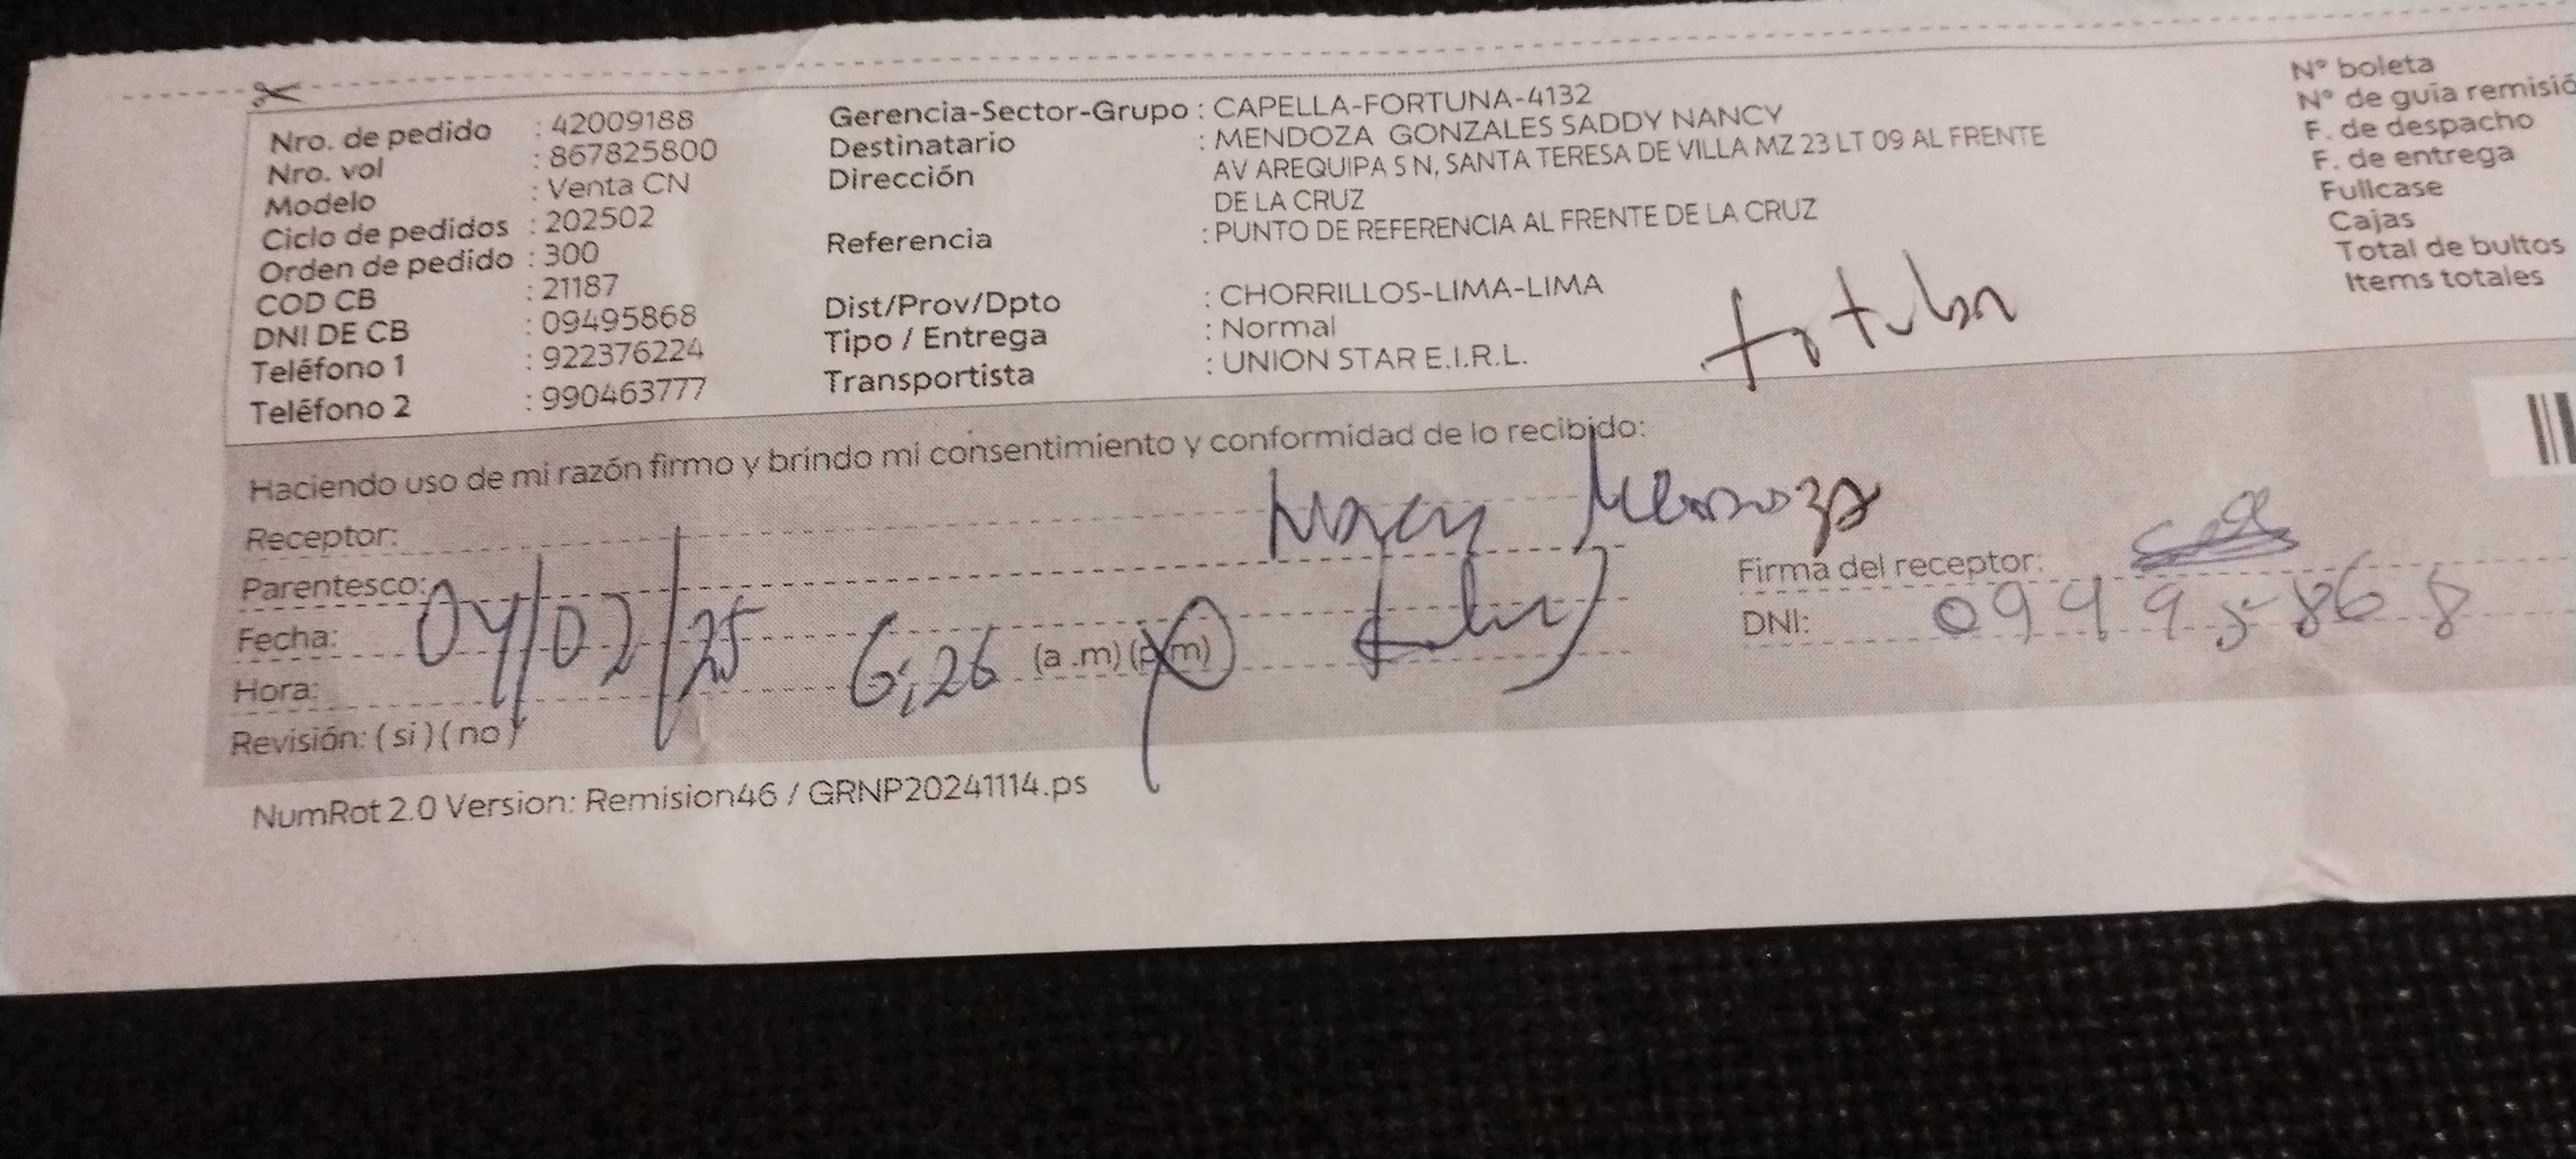 Nro. de pedido : 42009188
Nro. vol : 867825800
Modelo : Venta CN
Ciclo de pedidos : 202502
Orden de pedido : 300
COD CB : 21187
DNI DE CB : 09495868
Teléfono 1 : 922376224
Teléfono 2 : 990463777
Gerencia-Sector-Grupo : CAPELLA-FORTUNA-4132
Destinatario : MENDOZA GONZALES SADDY NANCY
Dirección AV AREQUIPA S N, SANTA TERESA DE VILLA MZ 23 LT 09 AL FRENTE
DE LA CRUZ
Referencia : PUNTO DE REFERENCIA AL FRENTE DE LA CRUZ
Dist/Prov/Dpto : CHORRILLOS-LIMA-LIMA
Tipo / Entrega : Normal
Transportista : UNION STAR E.I.R.L.
N° boleta
N° de guía remisió
F. de despacho
F. de entrega
Fullcase
Cajas
Total de bultos
Items totales
Haciendo uso de mi razón firmo y brindo mi consentimiento y conformidad de lo recibido:
Receptor: Nancy Mendoza
Parentesco:
Fecha: 04/02/25
Hora: 6:26 (a .m) (p.m)
Revisión: ( si ) ( no )
Firma del receptor:
DNI: 09495868
NumRot 2.0 Version: Remision46 / GRNP20241114.ps